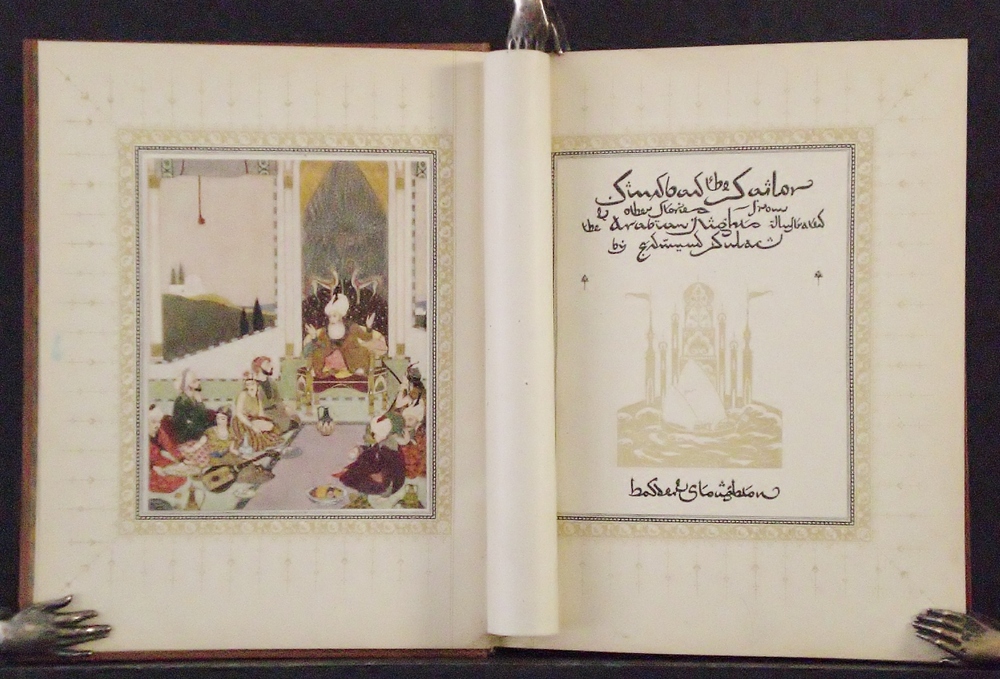 Sindbad the Sailor
& other stories from
the Arabian Nights illustrated
by Edmund Dulac
hodder & Stoughton